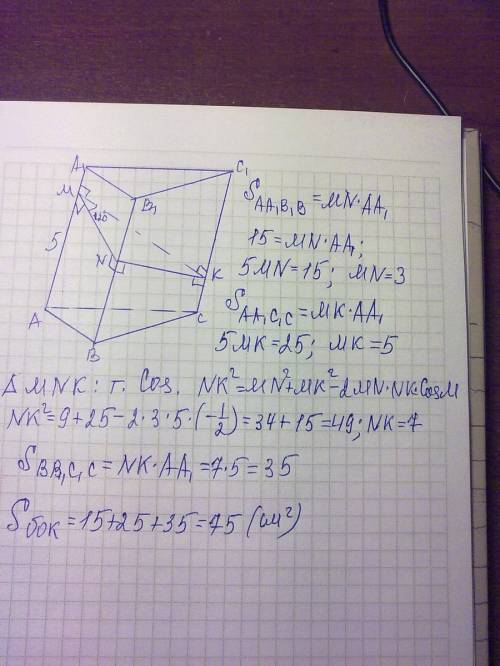 A₁
C₁
M
B₁
120
5
N
K
A
C
B
S AA₁B₁B = MN·AA₁
15 = MN·AA₁;
5MN = 15; MN = 3
S AA₁C₁C = MK·AA₁
5MK = 25; MK = 5
Δ MNK: т. Cos. NK² = MN² + MK² - 2MN·NK·CosM
NK² = 9 + 25 - 2·3·5·(-1/2) = 34 + 15 = 49; NK = 7
S BB₁C₁C = NK·AA₁ = 7·5 = 35
S бок = 15 + 25 + 35 = 75 (см²)